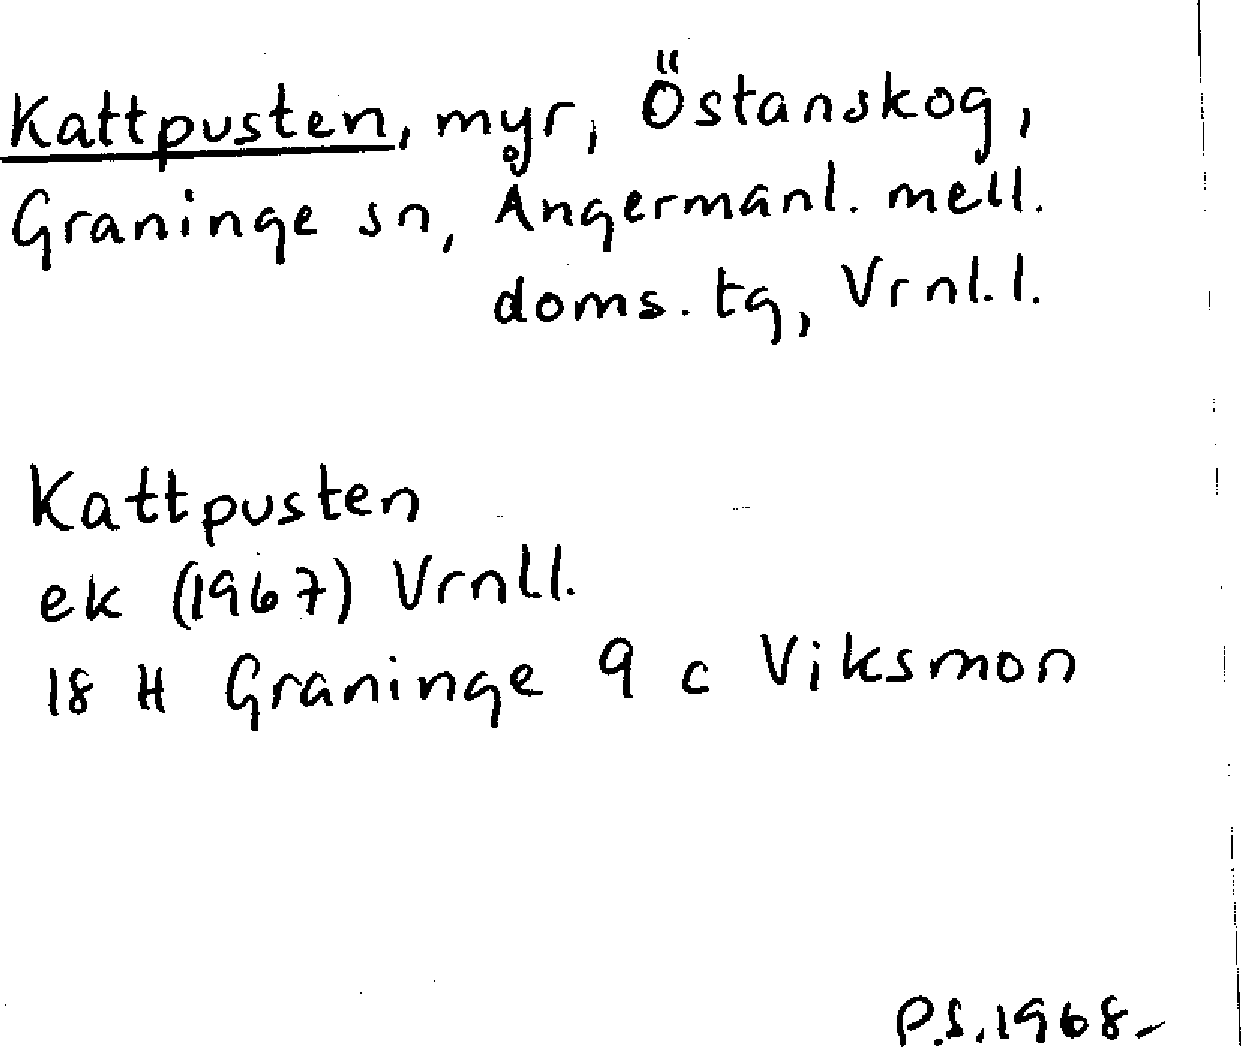 Kattpusten, myr, Östanskog,
Graninge sn, Ångermanl. mell.
doms. tg, Vrnl. l.
Kattpusten
ek (1967) Vrnll.
18 H Graninge 9 c Viksmon
P.S. 1968-